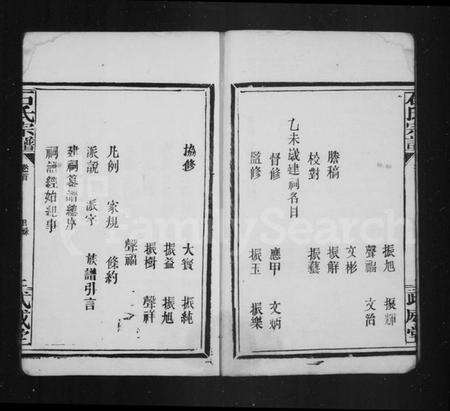 石氏宗譜
振旭 振輝
聲福 文治
文彬
謄稿 振解
校對 振藝
乙未歲建祠名目
督修 應甲 文炳
監修 振玉 振樂
武威堂
協修 大賓 振純
振益 振旭
振樹 聲祥
聲福
凡例 家規 條約
派說 派字 族譜引言
建祠慕譜總序
祠譜經始紀事
石氏宗譜
武威堂
FamilySearch